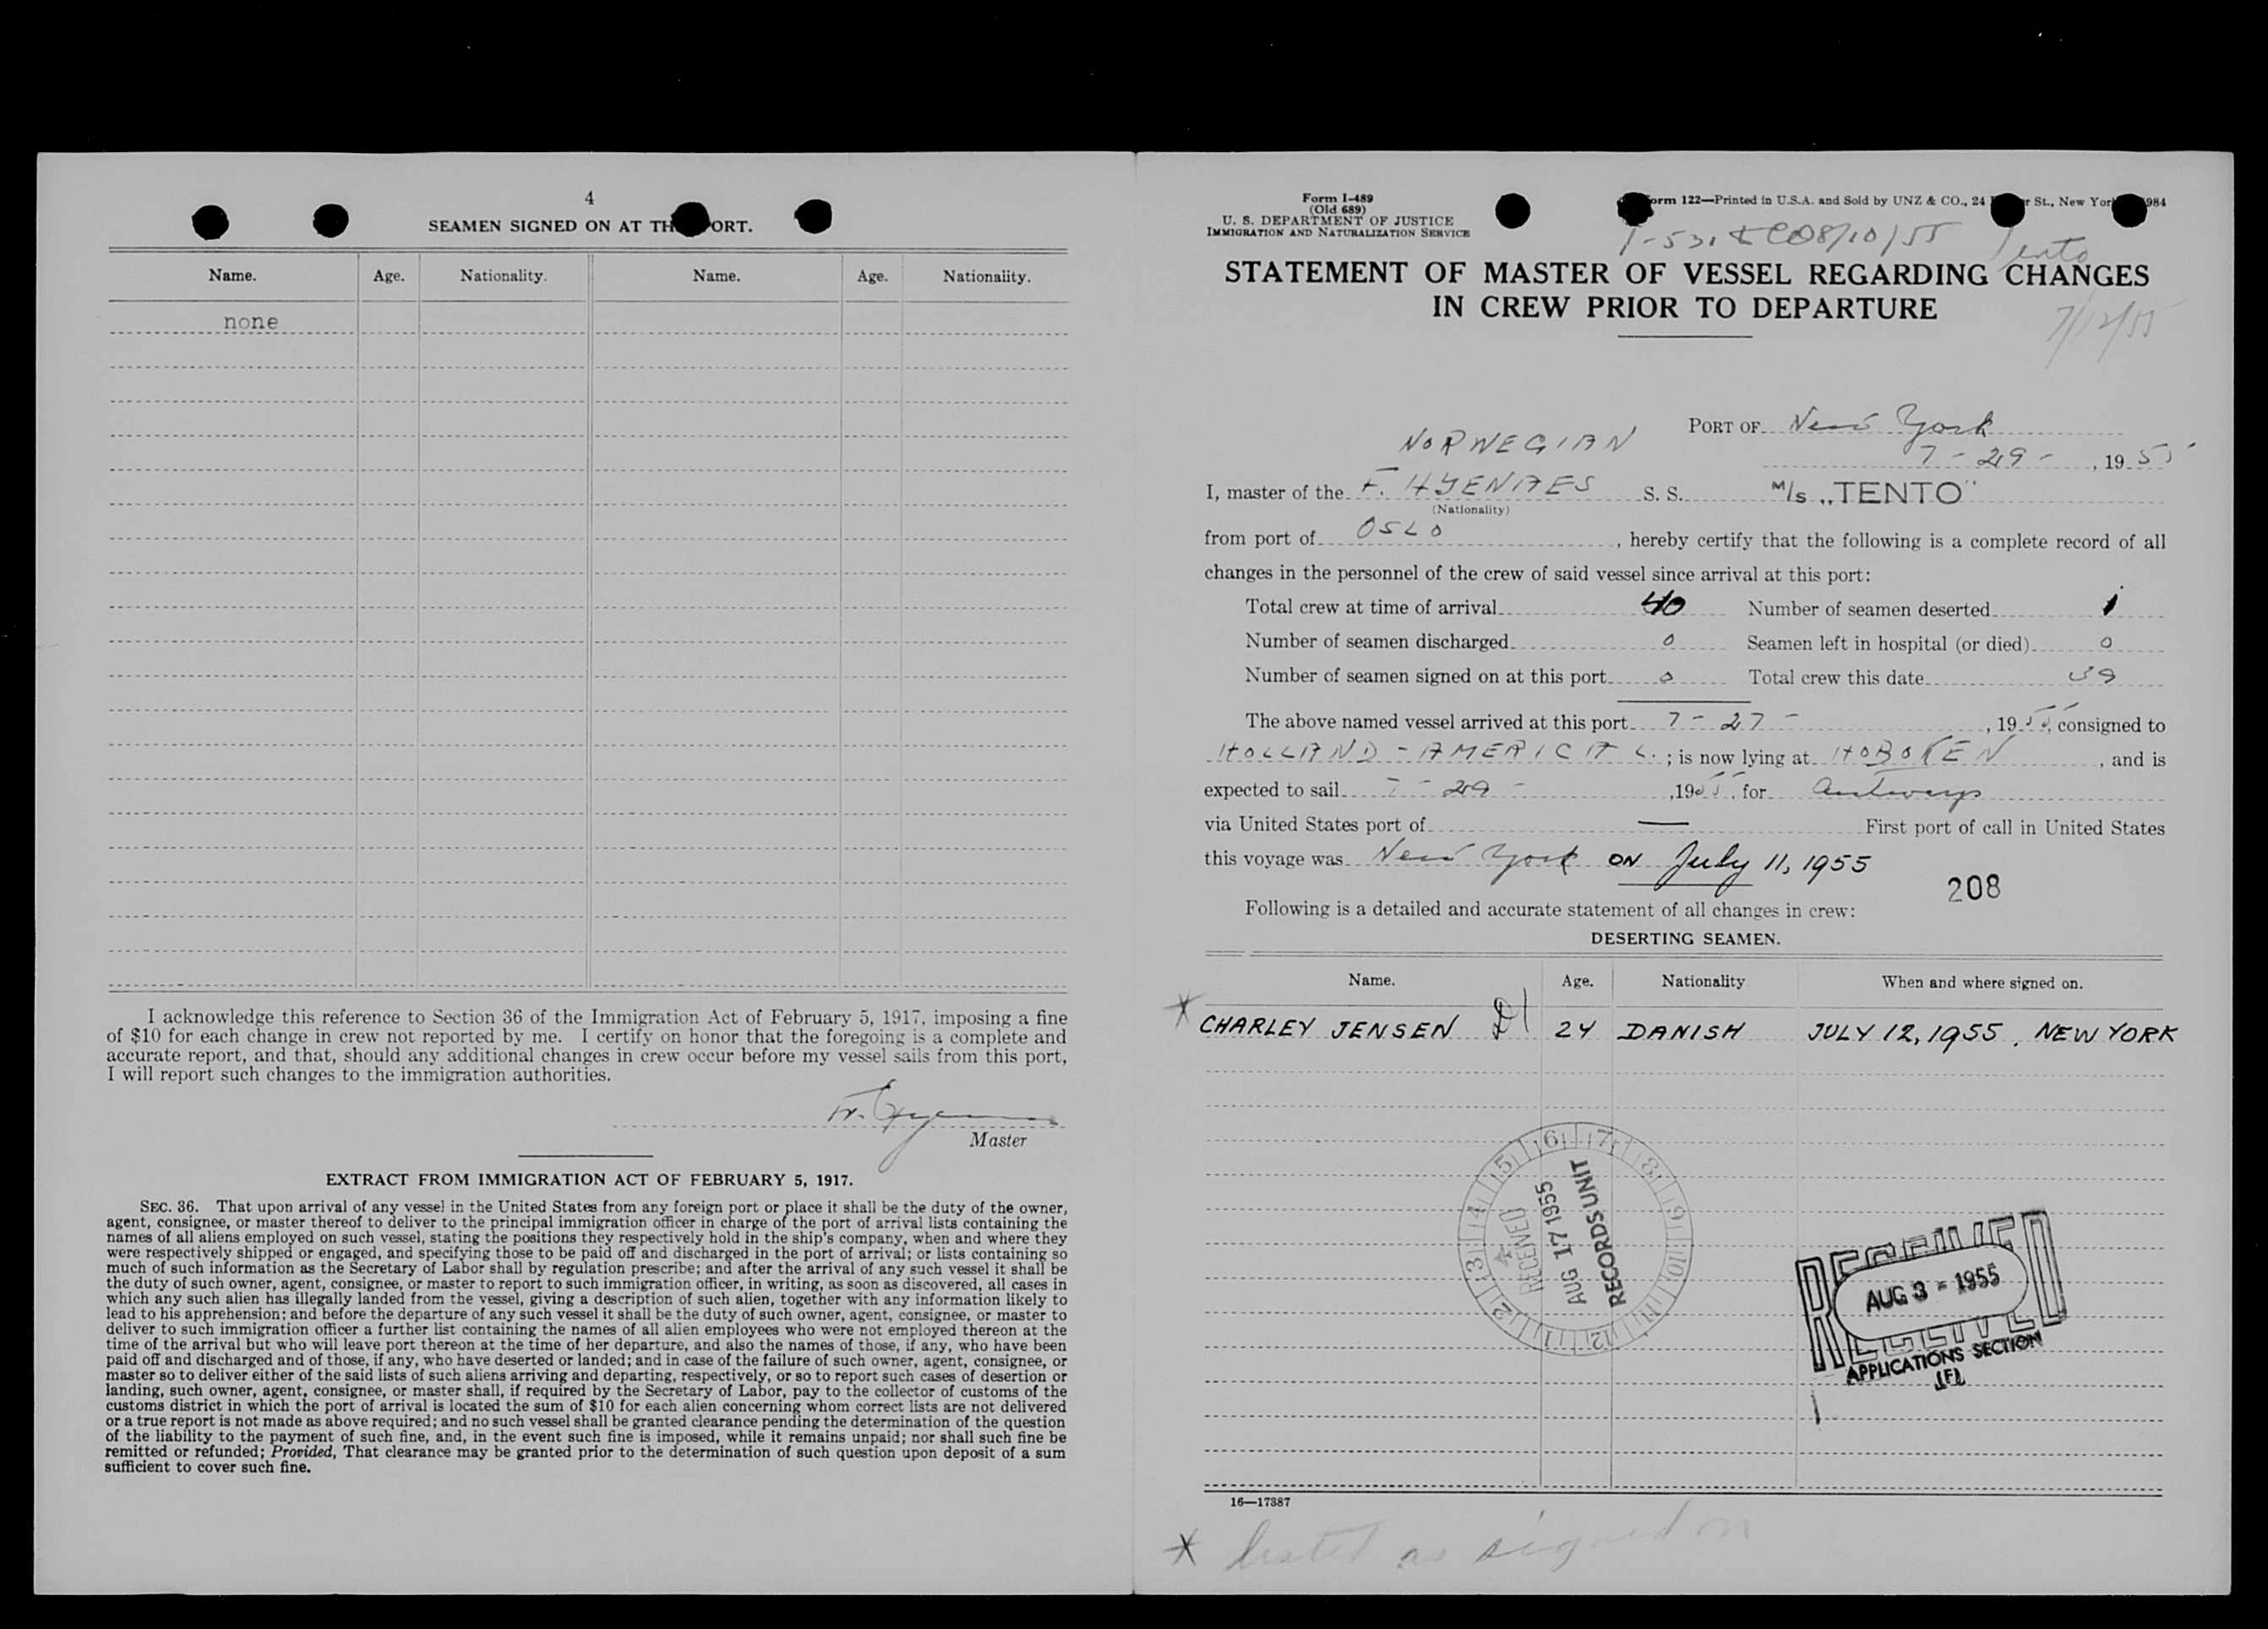 4
SEAMEN SIGNED ON AT TH PORT.
Name. Age. Nationality. Name. Age. Nationality.
none
I acknowledge this reference to Section 36 of the Immigration Act of February 5, 1917, imposing a fine
of $10 for each change in crew not reported by me. I certify on honor that the foregoing is a complete and
accurate report, and that, should any additional changes in crew occur before my vessel sails from this port,
I will report such changes to the immigration authorities.
Master
EXTRACT FROM IMMIGRATION ACT OF FEBRUARY 5, 1917.
SEC. 36. That upon arrival of any vessel in the United States from any foreign port or place it shall be the duty of the owner,
agent, consignee, or master thereof to deliver to the principal immigration officer in charge of the port of arrival lists containing the
names of all aliens employed on such vessel, stating the positions they respectively hold in the ship's company, when and where they
were respectively shipped or engaged, and specifying those to be paid off and discharged in the port of arrival; or lists containing so
much of such information as the Secretary of Labor shall by regulation prescribe; and after the arrival of any such vessel it shall be
the duty of such owner, agent, consignee, or master to report to such immigration officer, in writing, as soon as discovered, all cases in
which any such alien has illegally landed from the vessel, giving a description of such alien, together with any information likely to
lead to his apprehension; and before the departure of any such vessel it shall be the duty of such owner, agent, consignee, or master to
deliver to such immigration officer a further list containing the names of all alien employees who were not employed thereon at the
time of the arrival but who will leave port thereon at the time of her departure, and also the names of those, if any, who have been
paid off and discharged and of those, if any, who have deserted or landed; and in case of the failure of such owner, agent, consignee, or
master so to deliver either of the said lists of such aliens arriving and departing, respectively, or so to report such cases of desertion or
landing, such owner, agent, consignee, or master shall, if required by the Secretary of Labor, pay to the collector of customs of the
customs district in which the port of arrival is located the sum of $10 for each alien concerning whom correct lists are not delivered
or a true report is not made as above required; and no such vessel shall be granted clearance pending the determination of the question
of the liability to the payment of such fine, and, in the event such fine is imposed, while it remains unpaid; nor shall such fine be
remitted or refunded; Provided, That clearance may be granted prior to the determination of such question upon deposit of a sum
sufficient to cover such fine.
Form I-489
(Old 689)
U. S. DEPARTMENT OF JUSTICE
IMMIGRATION AND NATURALIZATION SERVICE
orm 122—Printed in U.S.A. and Sold by UNZ & CO., 24 r St., New York 984
8/10/55 Tento
STATEMENT OF MASTER OF VESSEL REGARDING CHANGES
IN CREW PRIOR TO DEPARTURE
7/12/55
PORT OF New York
NORWEGIAN
7-29-, 1955
I, master of the F. HYENAES S. S. M/s „TENTO"
(Nationality)
from port of OSLO, hereby certify that the following is a complete record of all
changes in the personnel of the crew of said vessel since arrival at this port:
Total crew at time of arrival 40 Number of seamen deserted 1
Number of seamen discharged 0 Seamen left in hospital (or died) 0
Number of seamen signed on at this port 0 Total crew this date 39
The above named vessel arrived at this port 7-27-, 1955, consigned to
HOLLAND-AMERICA L.; is now lying at HOBOKEN, and is
expected to sail 7-29-, 1955, for Antwerp
via United States port of — First port of call in United States
this voyage was New York ON July 11, 1955
208
Following is a detailed and accurate statement of all changes in crew:
DESERTING SEAMEN.
Name. Age. Nationality When and where signed on.
* CHARLEY JENSEN 24 DANISH JULY 12, 1955, NEW YORK
1 2 3 4 5 6 7 8 9 10 11 12
RECEIVED
AUG 17 1955
RECORDS UNIT
RECEIVED
AUG 3 - 1955
RECEIVED
APPLICATIONS SECTION
(F)
16—17387
* listed as signed on